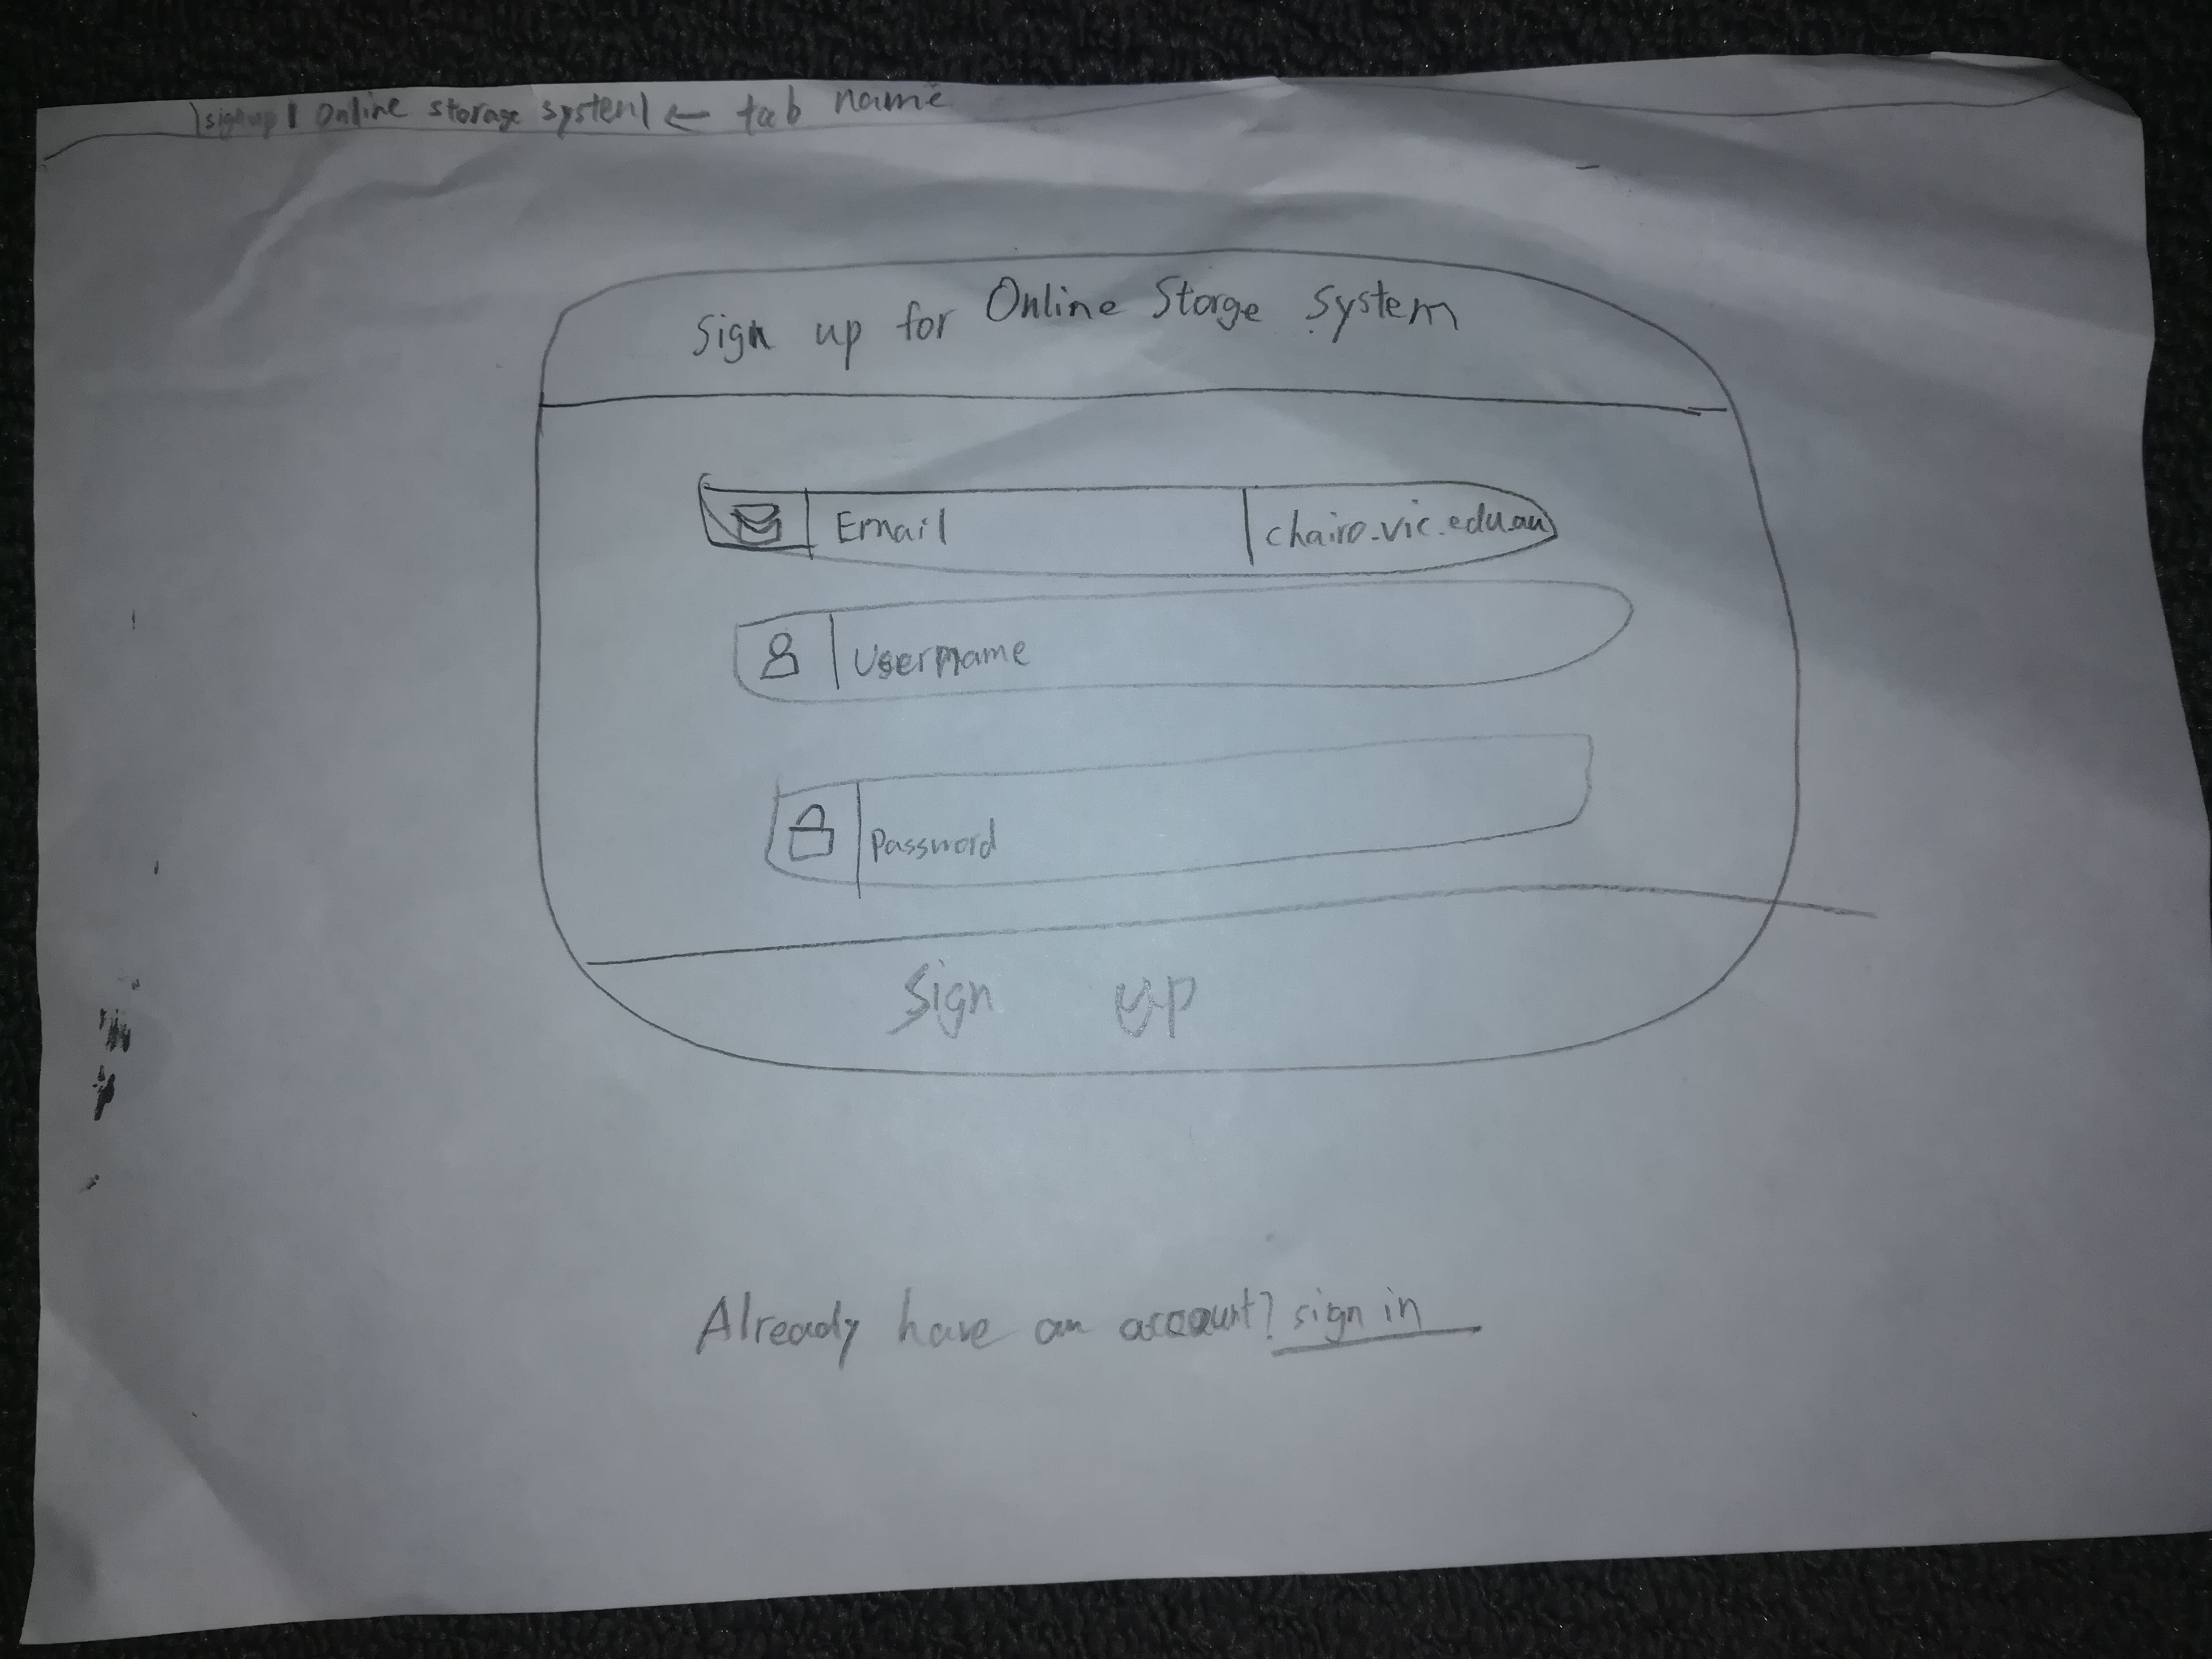 signup | Online storage system ← tab name
Sign up for Online Storge System
Email chairo.vic.edu.au
Username
Password
Sign up
Already have an account? sign in